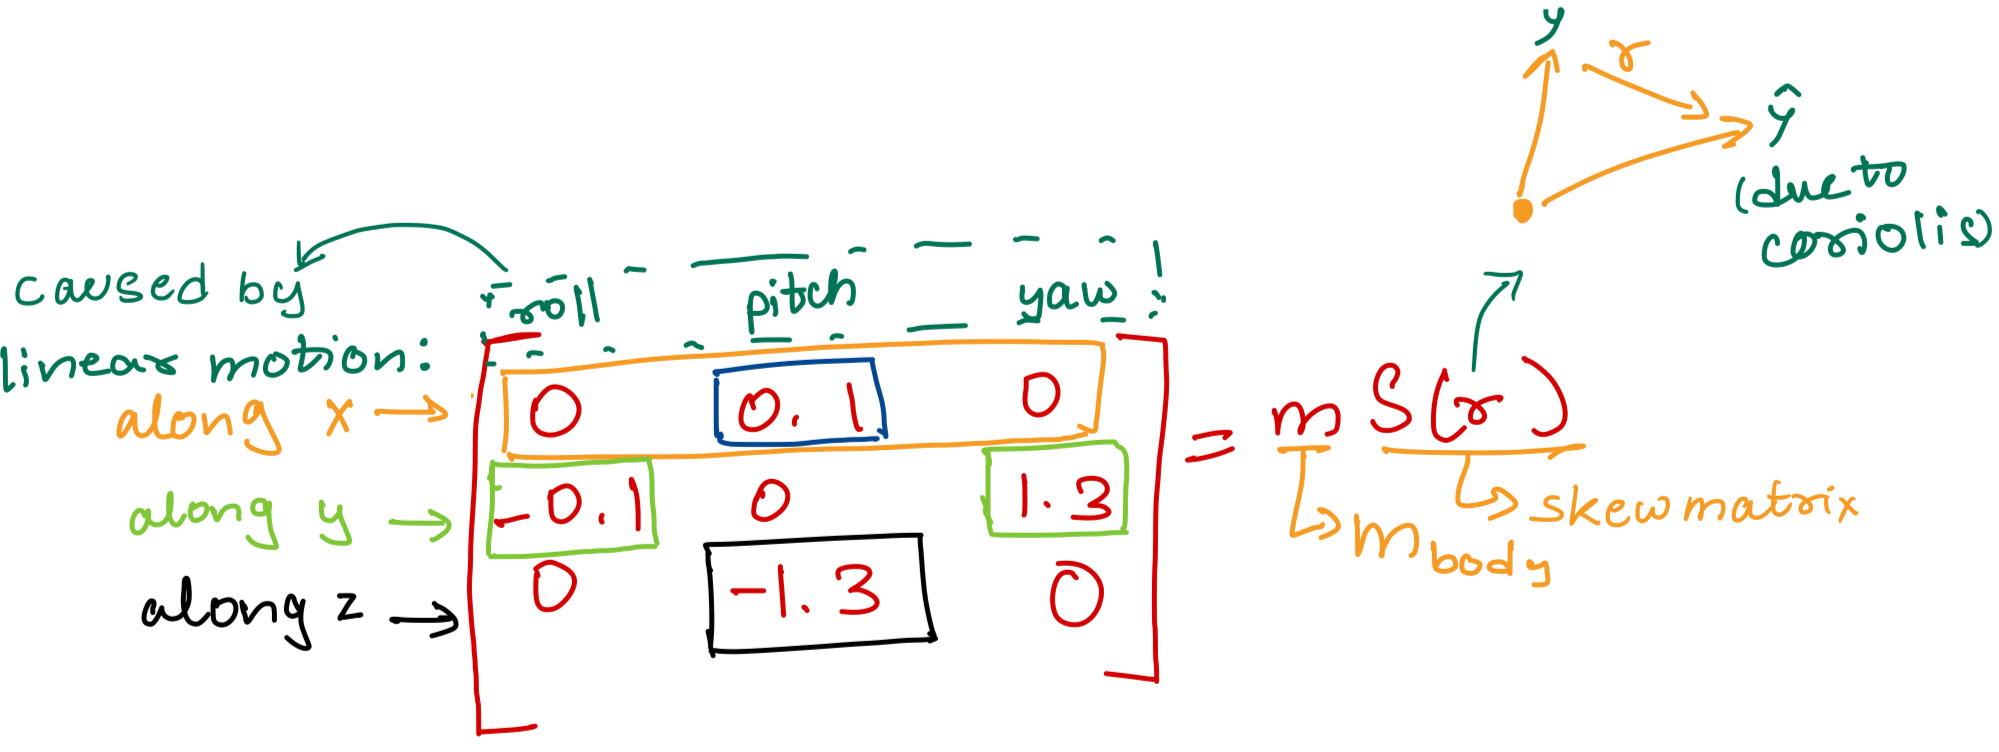 y
r
ŷ
(due to
coriolis)
caused by
linear motion:
roll pitch yaw
along x → 0 0.1 0
along y → -0.1 0 1.3
along z → 0 -1.3 0
= m S(r)
m body
skew matrix